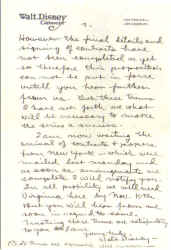 Walt Disney
Cartoonist
2.
However the final details and
signing of contracts have
not been completed as yet
so therefore this proposition
can not be put in force
until you hear further
from us. But these terms
I have set forth are what
will be necessary to make
the series a success.
I am now waiting the
arrival of contracts & papers
from New York - which were
mailed last monday and
as soon as arrangements are
complete I will notify you.
In all probility we will need
Virginia here by Nov. 10th.
But you will hear from me
soon in regard to same.
Trusting these terms are satisfactory
to you I am
Yours truly,
Walt Disney -